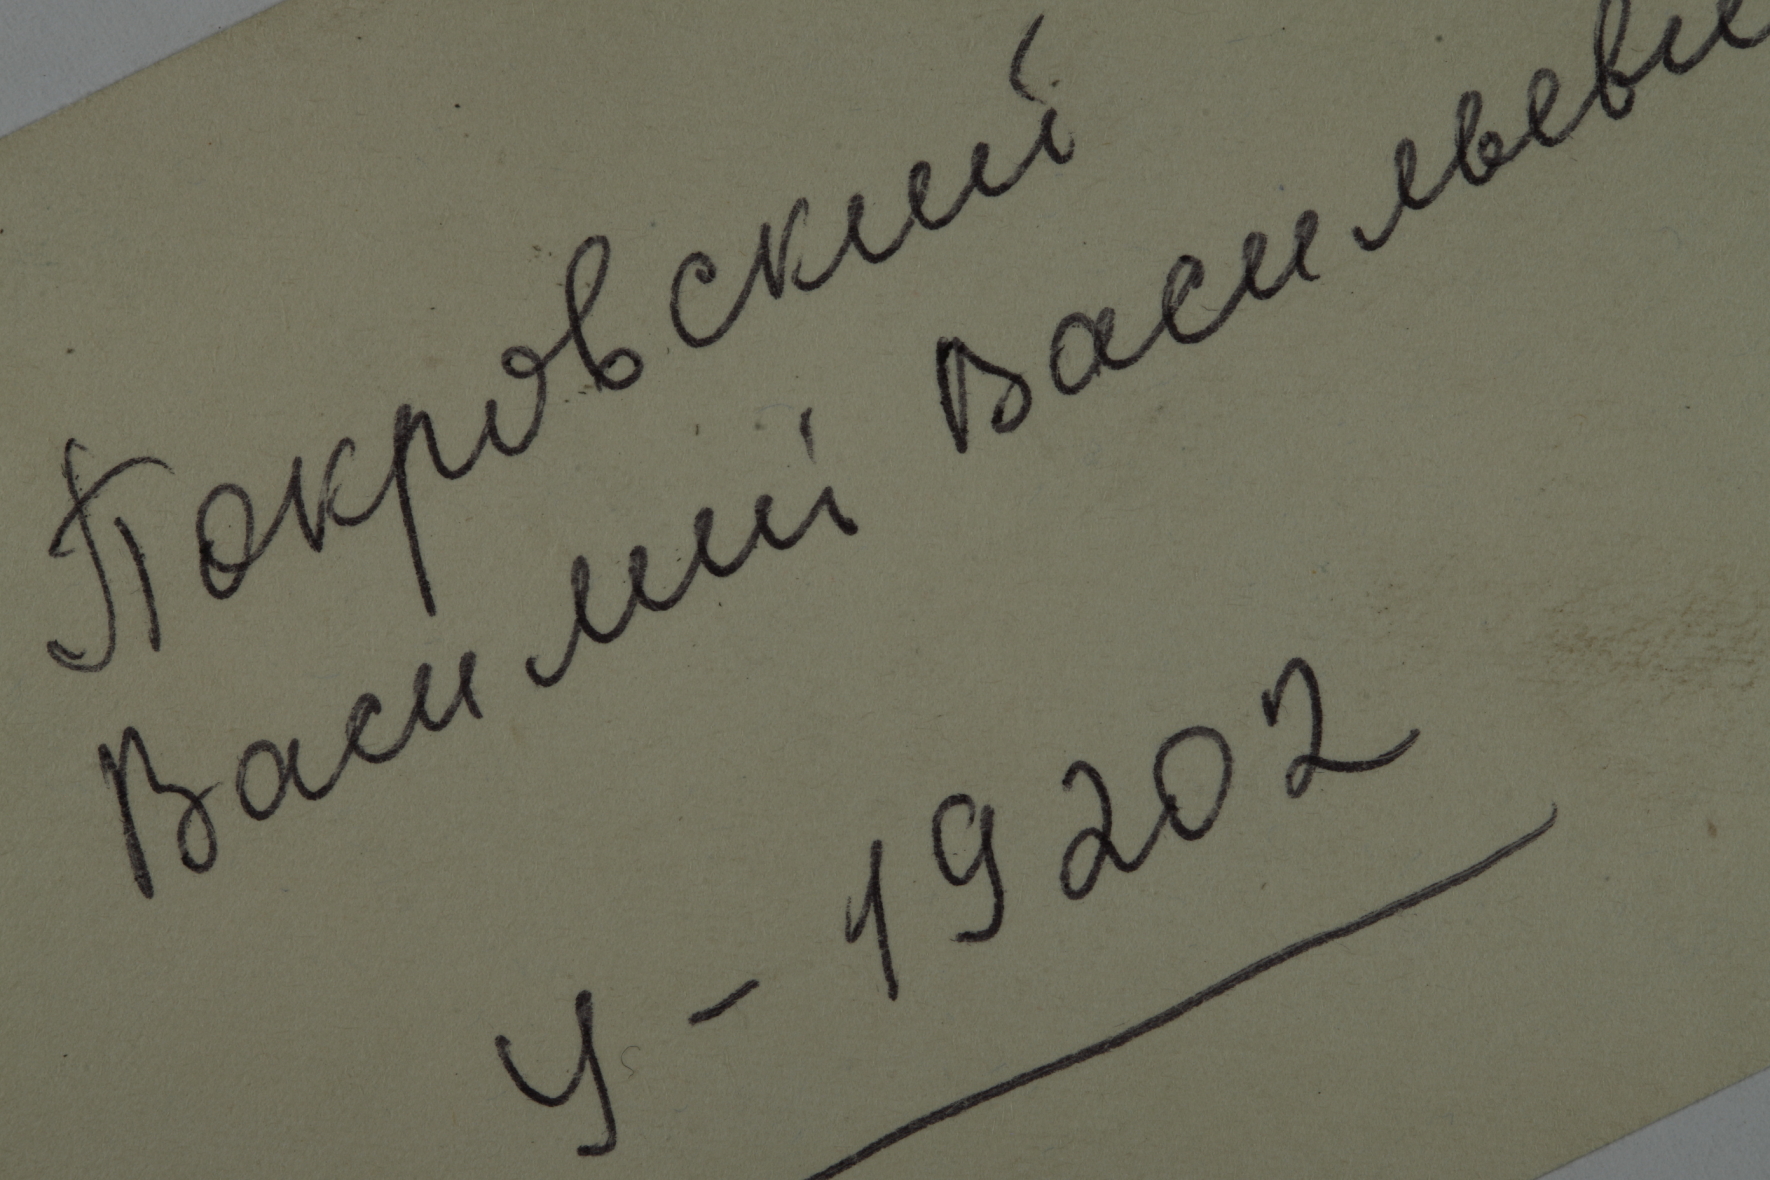 Покровский
Василий Васильеви
У - 19202